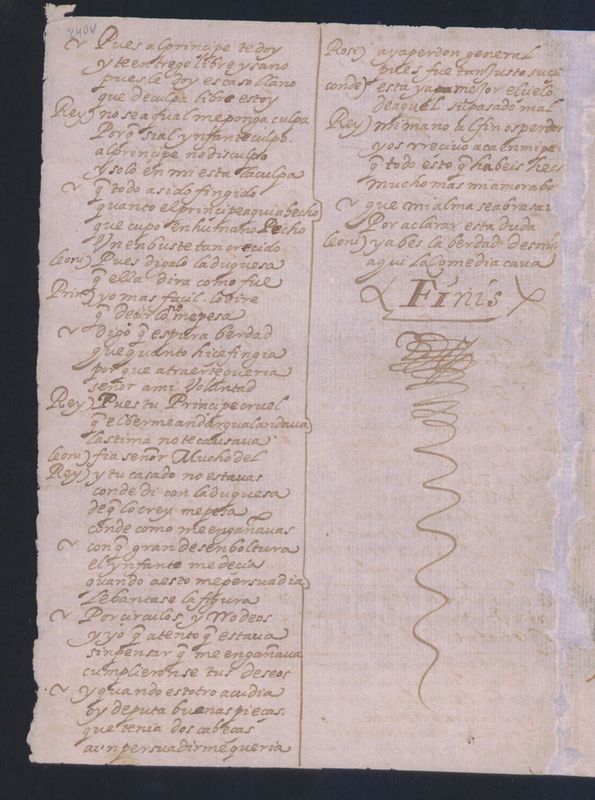 240v
Pues al principe te doy
y te entrego libre y sano
pues le doy es caso llano
que de culpa libre estoy
Rey) no sea fual me ponga culpa
Porq̃ si al ynfante culpo
al principe no disculpo
y solo en mi esta la culpa
q̃ todo a sido fingido
quanto el principe aqui a hecho
que cupo en humano Pecho
Vn enbuste tan crecido
leoni) Pues digalo la duquesa
q̃ ella dira como fue
Prin) yo mas facil lo dire
q̃ decirlo no me pesa
digo q̃ es pura berdad
que quanto hice fingia
por que atraerte queria
señor a mi Voluntad
Rey) Pues tu Principe cruel
q̃ el ber me andar qual andaua
lastima no te causaua
leoni) fia señor Mucho del
Rey) y tu casado no estauas
conde di con la duquesa
de q̃ lo crey me pesa
conde como me engañauas
con q̃ gran desenboltura
el ynfante me decia
quando a esto me persuadia
lebantase la figura
Por circulos y Rodeos
y yo q̃ atento q̃ estaua
sin pensar q̃ me engañaua
cumplieronse tus deseos
y quando estotro acudia
oy de puta buenas pieças
que tenia dos cabeças
aun persuadirme queria
Rosi) aya perdon general
pues fue tan justo su
conde) esta ya mejor el uelo
de aquel su pasado mal
Rey) mi mano al fin os perdo
y os rrecivo aca en mi
q̃ todo esto q̃ habeis hec
mucho mas mi amor abo
que mi alma se abrasa
Por aclarar esta duda
leoni) ya bes la berdad des
aqui la comedia caua
Finis